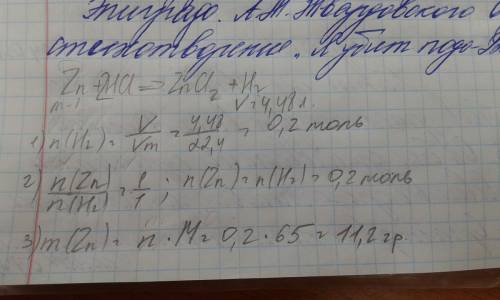 Эпиграф. А.Т. Твардовского
стихотворение „Я убит подо
Zn + 2HCl => ZnCl₂ + H₂
m-? V=4,48л.
1) n(H₂) = V/Vm = 4,48/22,4 = 0,2 моль
2) n(Zn)/n(H₂) = 1/1 ; n(Zn) = n(H₂) = 0,2 моль
3) m(Zn) = n · M = 0,2 · 65 = 11,2 гр.